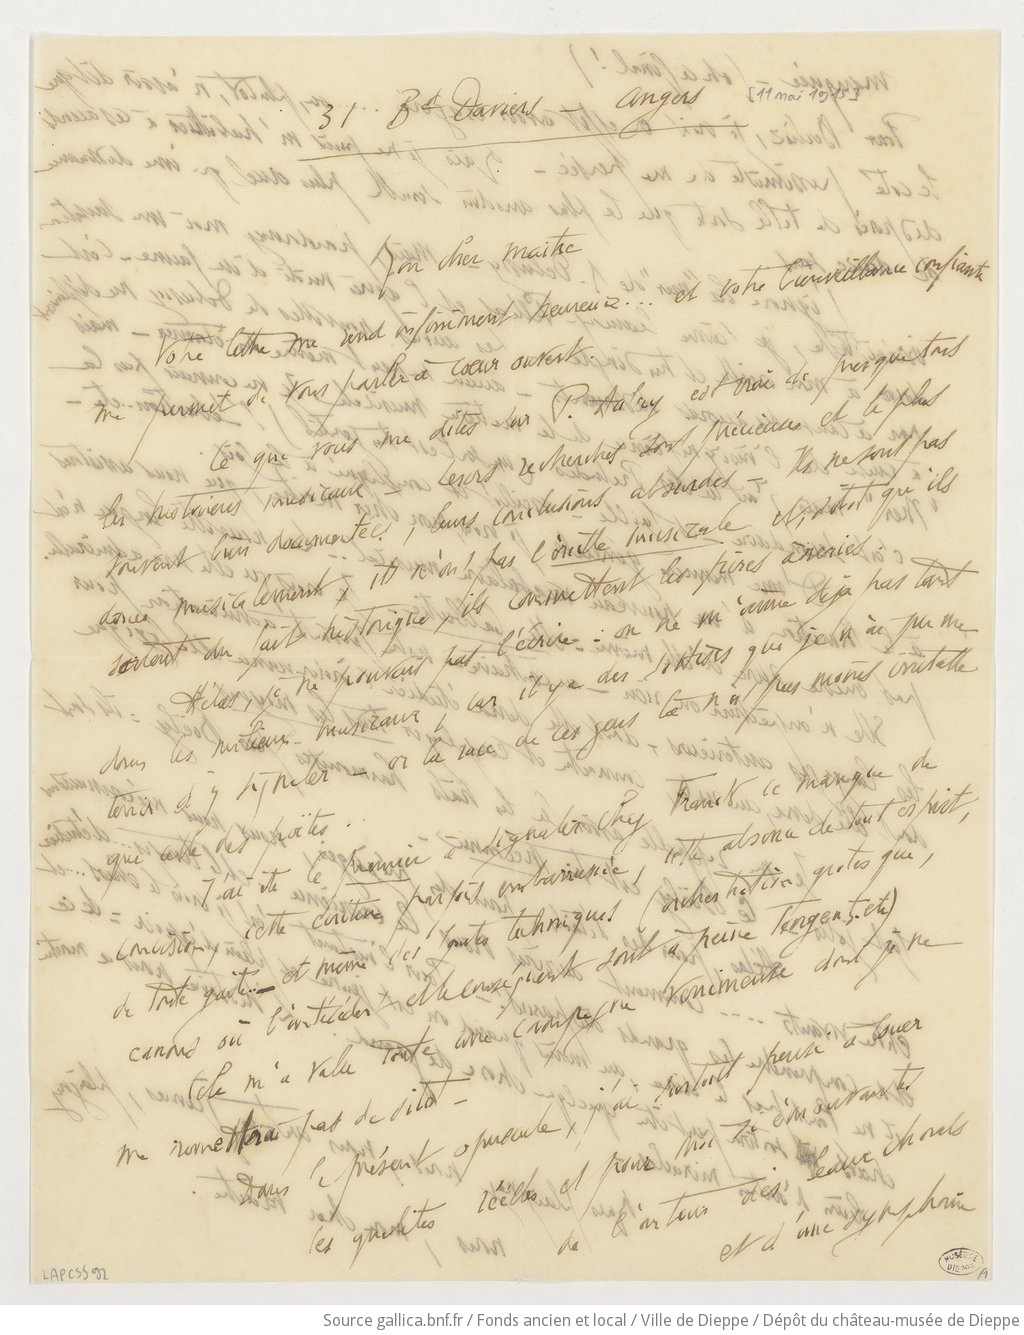 31. Bd Daviers Angers [11 mai 1915]
Mon cher maître
Votre lettre me rend infiniment heureux... et votre bienveillance confiante
me permet de vous parler à cœur ouvert.
Ce que vous me dites sur P. Aubry est vrai de presque tous
les historiens musicaux – Leurs recherches sont précieuses et le plus
souvent bien documentées, leurs conclusions absurdes – Ils ne sont pas
doués musicalement, ils n'ont pas l'oreille musicale et, sitôt qu'ils
sortent du fait historique, ils commettent les pires âneries.
Hélas, je ne pouvais pas l'écrire : on ne m'aime déjà pas tant
dans les milieux musicaux, car il y a des sottises que je n'ai pu me
tenir d'y signaler – or la race de ces gens là n'est pas moins irritable
que celle des poètes.
J'ai été le premier à signaler chez Franck ce manque de
concision, cette écriture parfois embarrassée, cette absence de tout esprit,
de toute gaîté – et même des fautes techniques (orchestration grotesque,
canons où l'antécédent et le conséquent sont à peine tangents, etc)
Cela m'a valu toute une campagne venimeuse dont je ne
me remettrai pas de sitôt –
Dans le présent opuscule, j'ai surtout pensé à louer
les qualités réelles et pour moi si émouvantes
de l'auteur des beaux chorals
et d'une symphonie
LAPCSS92
MUSÉE DE DIEPPE
Source gallica.bnf.fr / Fonds ancien et local / Ville de Dieppe / Dépôt du château-musée de Dieppe